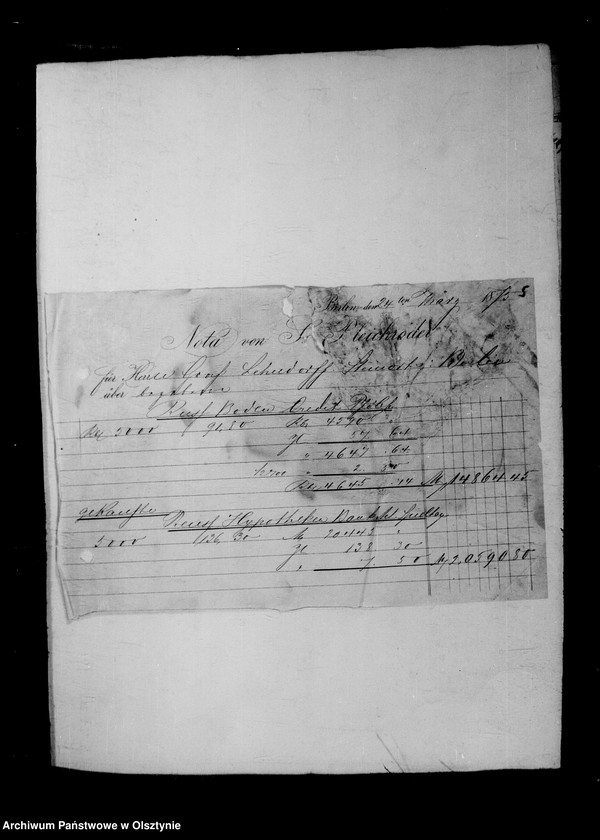 Berlin, den 24 ten März 1875
Nota von S. Bleichröder
für Herrn Graf Lehndorff Steinort Berlin
über begebene
Preuss Boden Credit Pfdbf
5000 91,80 4590
57 64
4647 64
2 50
4645 14 M 14864.45
gekaufte
Preuss Hypotheken Bank
5000 136 30 M 20445
138 30
7 50 M 2.059 0.80
Archiwum Państwowe w Olsztynie